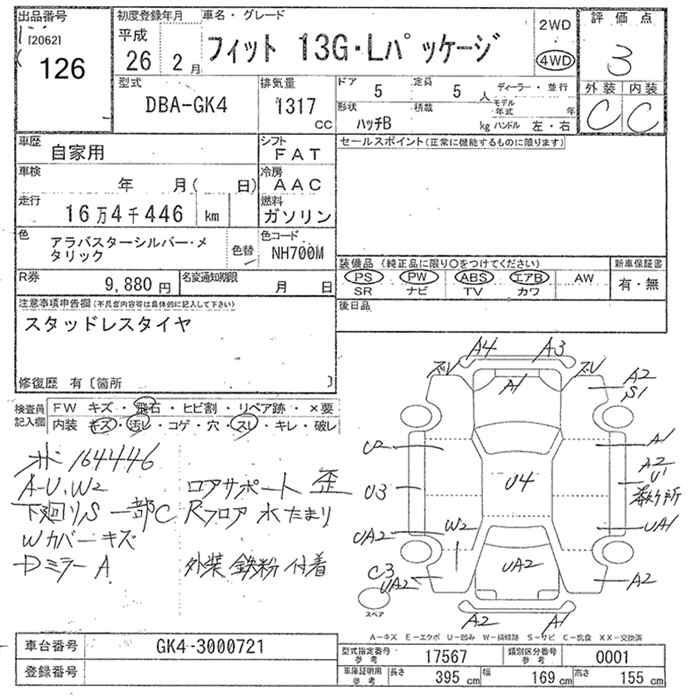 出品番号
[2062]
126
初度登録年月
平成
26 2月
車名・グレード
フィット 13G・Lパッケージ
2WD
4WD
評価点
3
外装 内装
C C
型式
DBA-GK4
排気量
1317
CC
ドア 5
定員 5 人
ディーラー・並行
形状 ハッチB
積載 kg
モデル年式 年
ハンドル 左・右
車歴
自家用
シフト
FAT
セールスポイント(正常に機能するものに限ります)
車検
年 月( 日)
冷房
AAC
走行
16万4千446 km
燃料
ガソリン
色
アラバスターシルバー・メ
タリック
色替
色コード
NH700M
装備品(純正品に限り○をつけてください)
新車保証書
PS PW ABS エアB AW
SR ナビ TV カワ
有・無
R券
9,880円
名変通知期限
月 日
後日品
注意事項申告欄(不具合内容等は具体的に記入して下さい)
スタッドレスタイヤ
修復歴 有〔箇所 〕
検査員
記入欄
FW キズ・飛石・ヒビ割・リペア跡・×要
内装 キズ・汚レ・コゲ・穴・スレ・キレ・破レ
164446
A-U、W2
ロアサポート 歪
下廻りS 一部C
Rフロア 水たまり
Wカバーキズ
Dミラー A
外装 鉄粉 付着
A4 A3
A1
ズU ズU
A2
S1
U2
A1
U3
U4
A2
U1
UA2
W2
UA1
C3
UA2
UA2
A2
A2 A1
スペア
A-キズ E-エクボ U-凹み W-補修跡 S-サビ C-腐食 XX-交換済
車台番号
GK4-3000721
登録番号
型式指定番号
参考
17567
類別区分番号
参考
0001
車庫証明用
参考
長さ 395 cm
幅 169 cm
高さ 155 cm